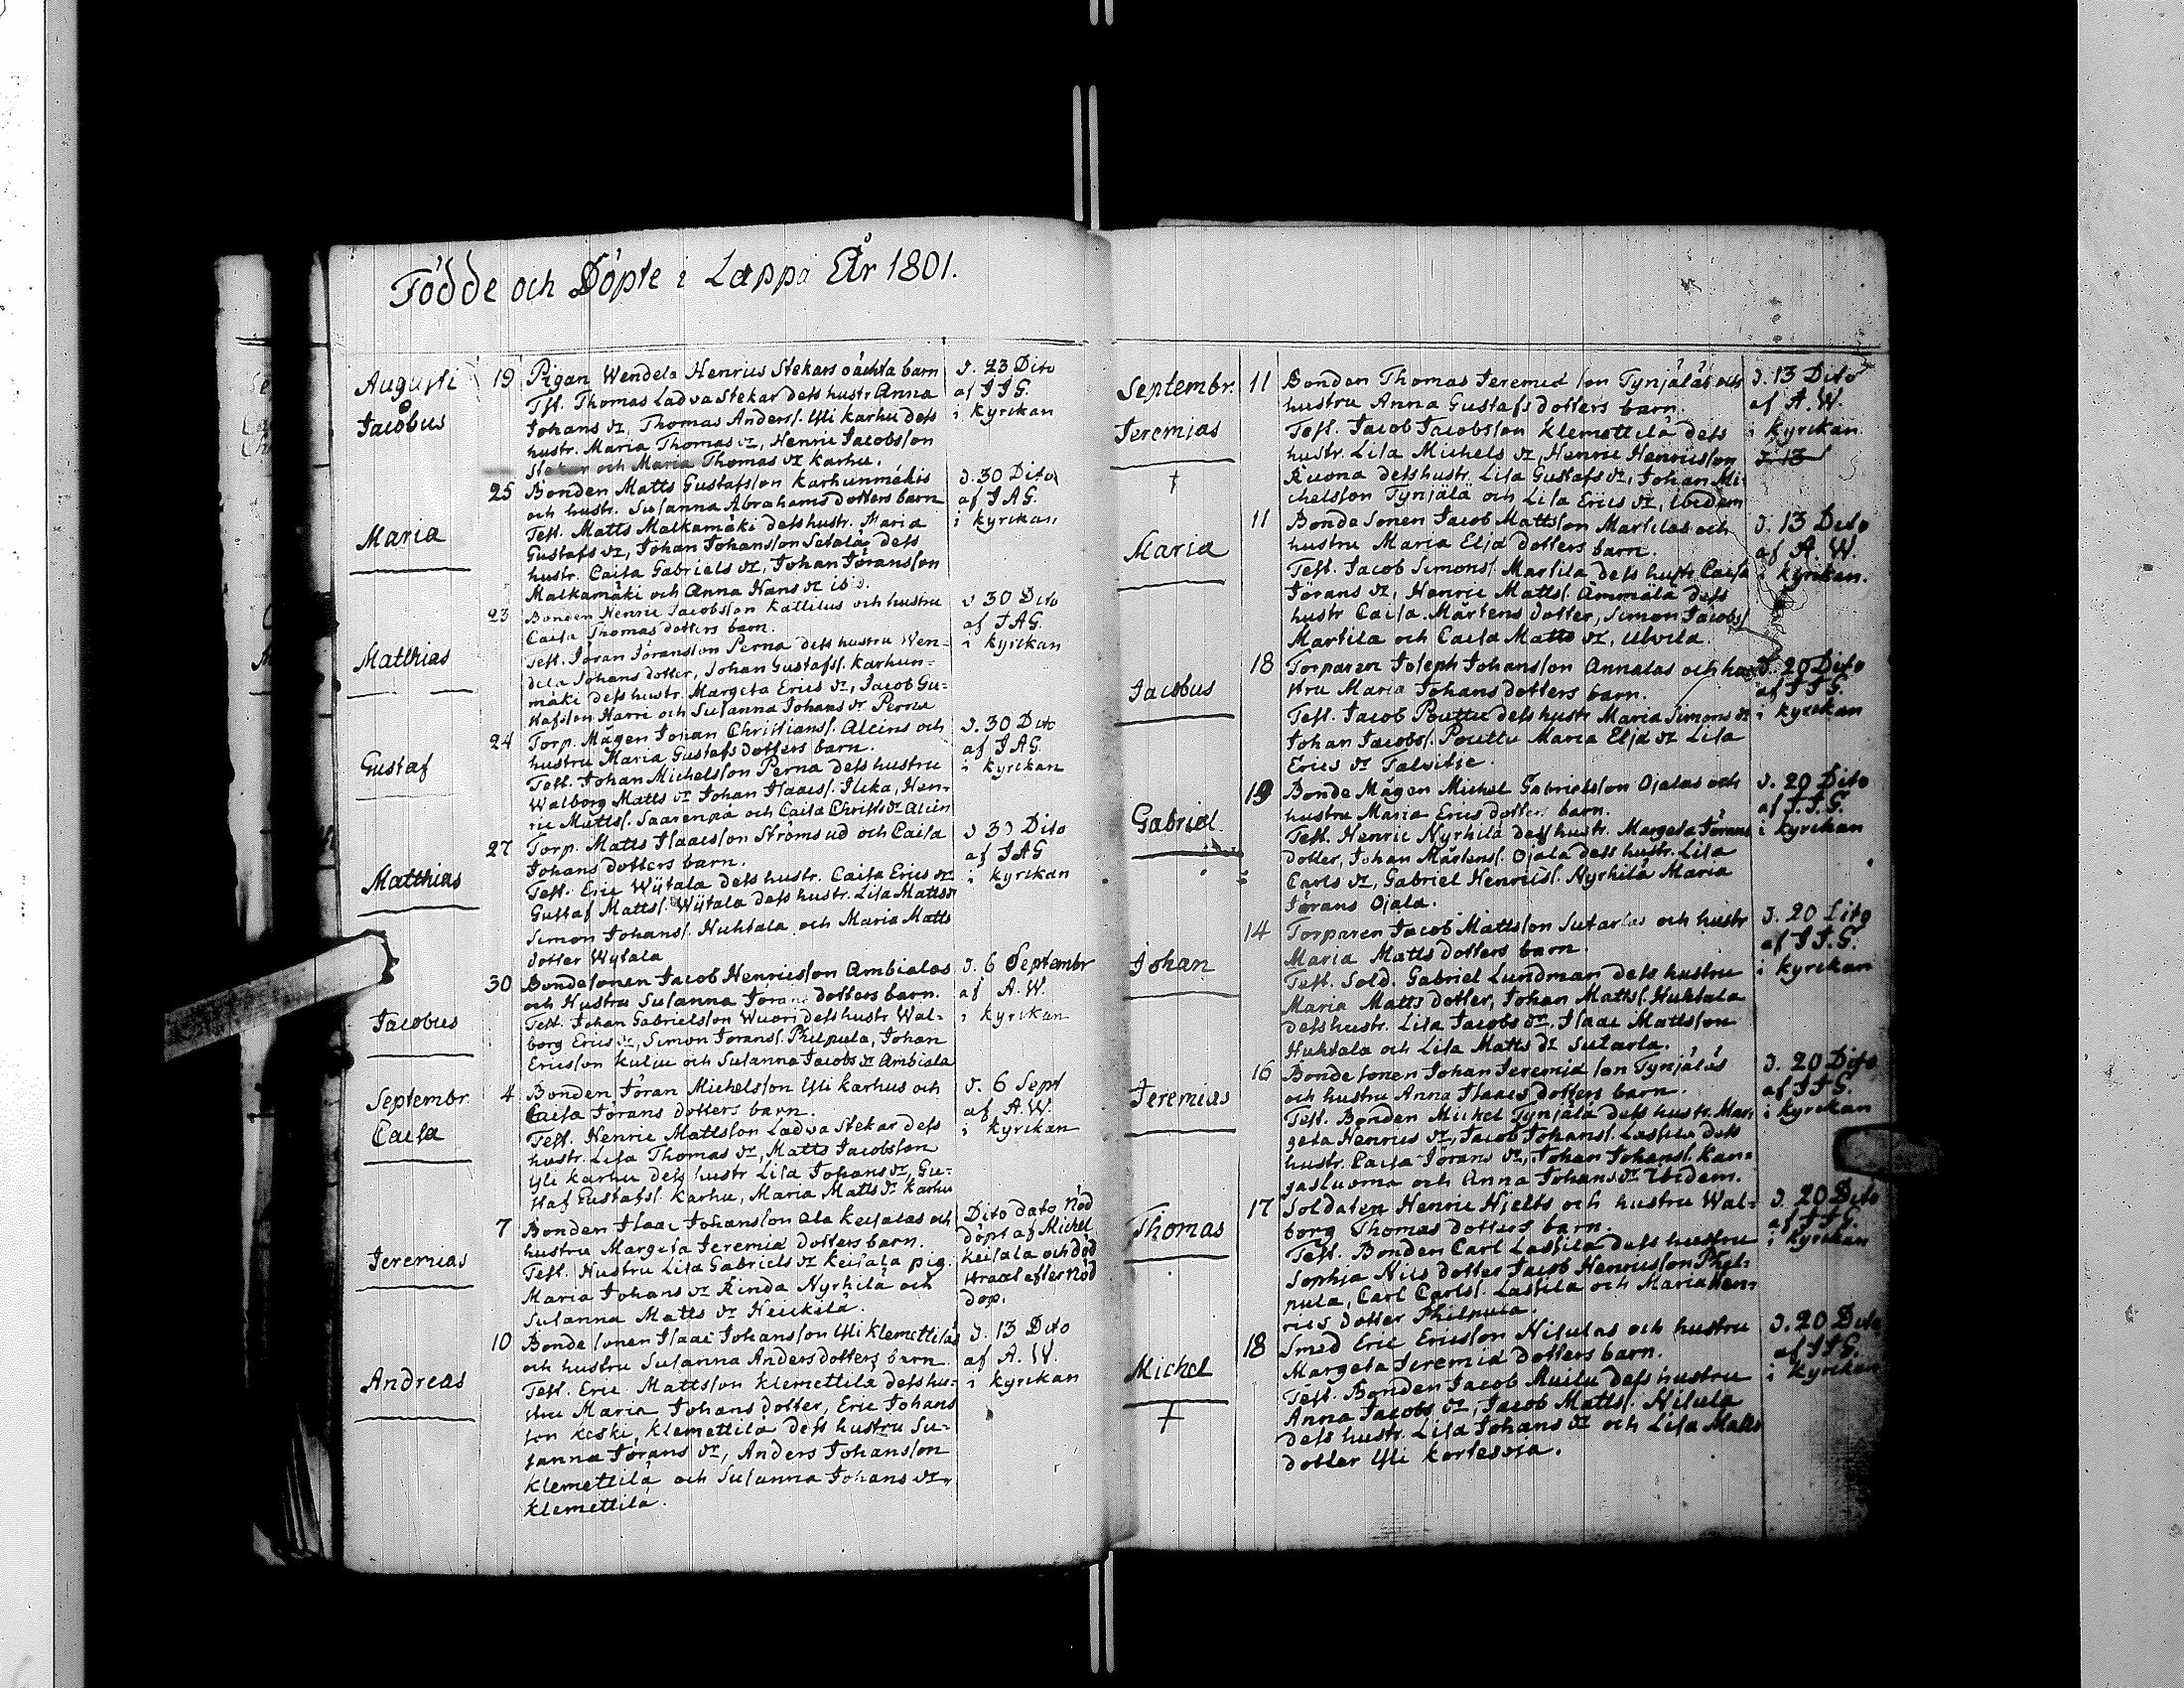 Födde och Döpte i Lappo År 1801.
Augusti 19 Pigan Wendela Henrics Stekars oächta barn d. 23 Dito
Jacobus Test. Thomas Ladva Stekar dess hustr Anna af J J G.
Johans dr, Thomas Anders. Yli Karhu dess i kyrkan
hustr. Maria Thomas dr, Henric Jacobsson
Stekar och Maria Thomas dr Karhu.
25 Bonden Matts Gustafsson Karhunmäkis d. 30 Dito
och hustr. Susanna Abrahams dotters barn af J A G.
Maria Test. Matts Malkamäki dess hustr. Maria i kyrkan
Gustafs dr, Johan Johansson Setälä dess
hustr. Caisa Gabriels dr, Johan Göransson
Malkamäki och Anna Hans dr ibid.
23 Bonden Henric Jacobsson Kattilus och hustru d 30 Dito
Caisa Thomas dotters barn. af J A G.
Matthias Test. Göran Göransson Perna dess hustru Wen- i kyrkan
dela Johans dotter, Johan Gustafss. Karhun-
mäki dess hustr. Margeta Erics dr, Jacob Gu-
stafsson Harri och Susanna Johans dr Perna
24 Torp. Mågen Johan Christianss. Alcins och d. 30 Dito
hustru Maria Gustafs dotters barn. af J A G.
Gustaf Test. Johan Michelsson Perna dess hustru i kyrkan
Walborg Matts dr Johan Isaacs. Ilcka, Hen-
ric Mattss. Saarenpä och Caisa Christs dr Alcin
27 Torp. Matts Isaacsson Strömsud och Caisa d 30 Dito
Johans dotters barn. af J A G
Matthias Test. Eric Wijtala dess hustr. Caisa Erics dr i kyrkan
Gustaf Mattss. Wijtala dess hustr. Lisa Matts dr
Simon Johanss. Huhtala och Maria Matts
dotter Wijtala
30 Bondesonen Jacob Henricsson Ambialas d. 6 Septembr
och Hustru Susanna Görans dotters barn. af A. W.
Jacobus Test. Johan Gabrielsson Wuori dess hustr Wal- i kyrkan
borg Erics dr, Simon Göranss. Philpula, Johan
Ericsson Kulju och Susanna Jacobs dr Ambiala
Septembr 4 Bonden Göran Michelsson Yli Karhus och d. 6 Sept
Caisa Caisa Görans dotters barn. af A. W.
Test. Henric Mattsson Ladva Stekar dess i kyrkan
hustr. Lisa Thomas dr, Matts Jacobsson
Yli Karhu dess hustr Lisa Johans dr, Gu-
staf Gustafss. Karhu, Maria Matts dr Karhu
7 Bonden Isaac Johansson Ala Keisalas och Dito dato Nöd
hustru Margeta Jeremiæ dotters barn. döpt af Michel
Jeremias Test. Hustru Lisa Gabriels dr Keisala pig. Keisala och död
Maria Johans dr Rinda Nyrhilä och straxt efter Nöd
Susanna Matts dr Heickilä. dop.
10 Bonde sonen Isaac Johansson Yli Klemettiläs d. 13 Dito
och hustru Susanna Anders dotters barn. af A. W.
Andreas Test. Eric Mattsson Klemettilä dess hu- i kyrkan
stru Maria Johans dotter, Eric Johans
son Keski, Klemettilä dess hustru Su-
sanna Görans dr, Anders Johansson
Klemettilä och Susanna Johans dr,
Klemettilä.
Septembr. 11 Bonden Thomas Jeremiæ son Tynjäläs och d. 13 Dito
hustru Anna Gustafs dotters barn. af A. W.
Jeremias Test. Jacob Jacobsson Klemettilä dess i kyrkan
hustr. Lisa Michels dr, Henric Henricsson d 13
Ruona dess hustr. Lisa Gustafs dr, Johan Mi-
chelsson Tynjälä och Lisa Erics dr, Ibidem
11 Bonde sonen Jacob Mattsson Martilas och d. 13 Dito
Maria hustru Maria Eljæ dotters barn. af A. W.
Test. Jacob Simonss. Martila dess hustr Caisa i kyrkan.
Görans dr, Henric Mattss. Ämmälä dess
hustr Caisa Mårtens dotter, Simon Jacobss
Martila och Caisa Matts dr, Ulvila.
18 Torparen Joseph Johansson Annalas och hu- d. 20 Dito
Jacobus stru Maria Johans dotters barn. af J J G.
Test. Jacob Pouttu dess hustr Maria Simons dr i kyrkan
Johan Jacobss. Pouttu Maria Eljæ dr Lisa
Erics dr Talvitie.
19 Bonde Mågen Michel Gabrielsson Ojalas och d. 20 Dito
hustru Maria Erics dotters barn. af J. J. G.
Gabriel. Test. Henric Nyrhilä dess hustr. Margeta Görans i kyrkan
dotter, Johan Mårtenss. Ojala dess hustr. Lisa
Carls dr, Gabriel Henricss. Nyrhilä Maria
Görans Ojala.
14 Torparen Jacob Mattsson Sutarlas och hustr d. 20 Dito
Maria Matts dotters barn. af J J. G.
Johan Test. Sold. Gabriel Lundman dess hustru i kyrkan
Maria Matts dotter, Johan Mattss. Huhtala
dess hustr. Lisa Jacobs dr, Isaac Mattsson
Huhtala och Lisa Matts dr Sutarla.
16 Bonde sonen Johan Jeremiæ son Tynjäläs d. 20 Dito
och hustru Anna Isaacs dotters barn. af J J G.
Jeremias Test. Bonden Michel Tynjälä dess hustr. Mar- i kyrkan
geta Henrics dr, Jacob Johanss. Lassila dess
hustr. Caisa Görans dr, Johan Johanss. Kan-
gasluoma och Anna Johans dr Ibidem.
17 Soldaten Henric Hjelts och hustru Wal- d. 20 Dito
Thomas borg Thomas dotters barn. af J J G.
Test. Bonden Carl Lassila dess hustru i kyrkan
Sophia Nils dotter Jacob Henricsson Phil-
pula, Carl Carlss. Lassila och Maria Hen-
rics dotter Philpula.
18 Smed Eric Ericsson Hisulas och hustru d. 20 Dito
Michel Margeta Jeremiæ dotters barn. af J J G.
Test. Bonden Jacob Muilu dess hustru i kyrkan
Anna Jacobs dr, Jacob Mattss. Hisula
dess hustr. Lisa Johans dr och Lisa Matts
dotter Yli Kortesoja.